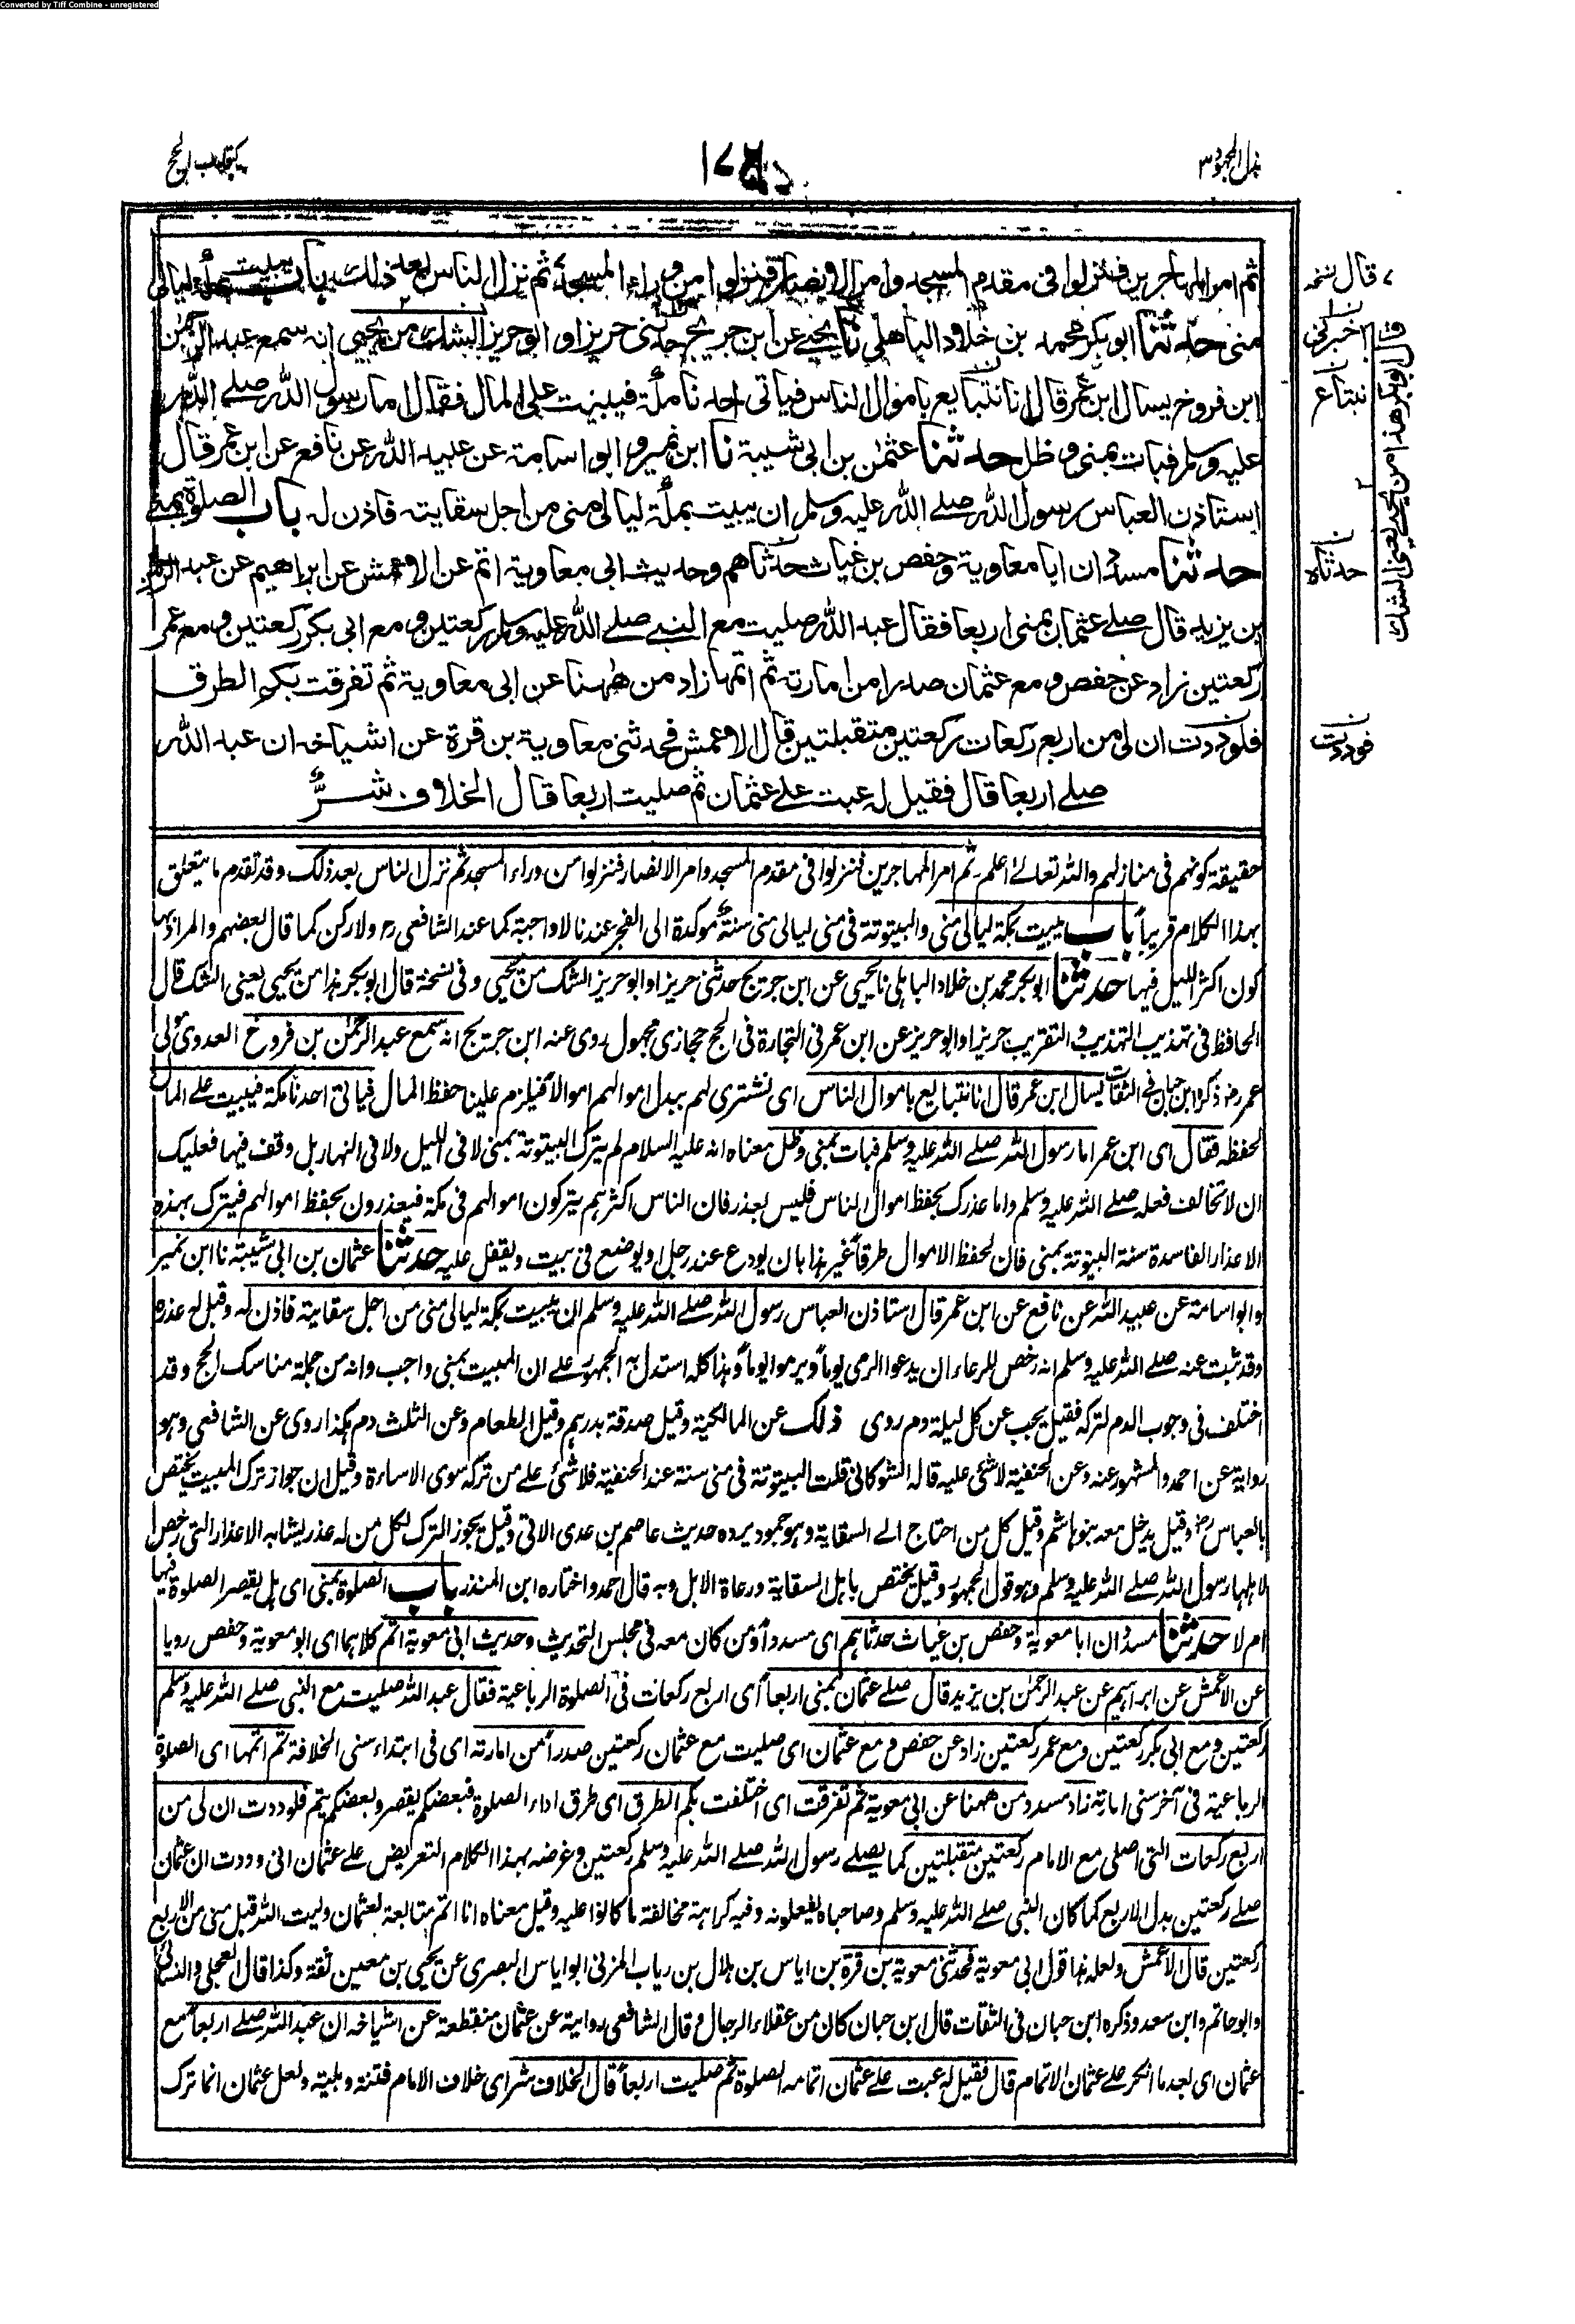 Converted by Tiff Combine - unregistered
بذل المجهود ٣
كتاب الحج
ثم امر المهاجرين فنزلوا فى مقدم المسجد وامر الانصار فنزلوا من وراء المسجد ثم نزل الناس بعد ذلك باب يبيت بمكة ليالى
منى حدثنا ابوبكر محمد بن خلاد الباهلى نا يحيى عن ابن جريج حدثنى حريز او ابو حريز الشك من يحيى انه سمع عبد الرحمن
ابن فروخ يسال ابن عمر قال انا نتبايع باموال الناس فياتى احدنا مكة فيبيت على المال فقال اما رسول الله صلے الله
عليه وسلم فبات بمنى وظل حدثنا عثمٰن بن ابى شيبة نا ابن نمير و ابو اسامة عن عبيد الله عن نافع عن ابن عمر قال
استاذن العباس رسول الله صلے الله عليه وسلم ان يبيت بمكة ليالى منى من اجل سقايته فاذن له باب الصلوة بمنى
حدثنا مسدد ان ابا معاوية وحفص بن غياث حدثاهم وحديث ابى معاوية اتم عن الاعمش عن ابراهيم عن عبد الرحمن
بن يزيد قال صلے عثمان بمنى اربعا فقال عبد الله صليت مع النبى صلے الله عليه وسلم ركعتين ومع ابى بكر ركعتين ومع عمر
ركعتين زاد عن حفص ومع عثمان صدرا من امارته ثم اتمها زاد من ههنا عن ابى معاوية ثم تفرقت بكم الطرق
فلوددت ان لى من اربع ركعات ركعتين متقبلتين قال الاعمش فحدثنى معاوية بن قرة عن اشياخه ان عبد الله
صلے اربعا قال فقيل له عبت علے عثمان ثم صليت اربعا قال الخلاف شرٌّ
اخبرنى
قال ابوبكر هذا من يحيى يعنى الشك
نبتاع
حدثناه
فوددت
حقيقة كونهم فى منازلهم والله تعالےٰ اعلم۔ ثم امر المهاجرين فنزلوا فى مقدم المسجد وامر الانصار فنزلوا من وراء المسجد ثم نزل الناس بعد ذلك وقد تقدم ما يتعلق
بهذا الكلام قريباً باب يبيت بمكة ليالى منى والبيتوتة فى منى ليالى منى سنة موكدة الى الفجر عندنا لا واجبة كما عند الشافعى رح ولا ركن كما قال بعضهم والمراد بها
كون اكثر الليل فيها حدثنا ابوبكر محمد بن خلاد الباهلى نا يحيى عن ابن جريج حدثنى حريز او ابو حريز الشك من يحيى وفى نسخة قال ابوبكر هذا من يحيى يعنى الشك قال
الحافظ فى تهذيب التهذيب و التقريب حريز او ابو حريز عن ابن عمر فى التجارة فى الحج حجازى مجهول روى عنه ابن جريج انه سمع عبد الرحمٰن بن فروخ العدوى مولى
عمر رضى ذكره ابن حبان فى الثقات يسال ابن عمر قال انا نتبايع باموال الناس اى نشترى لهم ببدل اموالهم اموالا فيلزم علينا حفظ المال فياتى احدنا مكة فيبيت على المال
لحفظه فقال اى ابن عمر اما رسول الله صلے الله عليه وسلم فبات بمنى وظل معناه انه عليه السلام لم يترك البيتوتة بمنى لا فى الليل ولا فى النهار بل وقف فيها فعليك
ان لا تخالف فعله صلے الله عليه وسلم واما عذرك بحفظ اموال الناس فليس بعذر فان الناس اكثرهم يتركون اموالهم فى مكة فيعذرون بحفظ اموالهم فيترك بهذه
الاعذار الفاسدة سنة البيتوتة بمنى فان لحفظ الاموال طرقاً غير هذا بان يودع عند رجل او يوضع فى بيت ويقفل عليه حدثنا عثمان بن ابى شيبة نا ابن نمير
وابو اسامة عن عبيد الله عن نافع عن ابن عمر قال استاذن العباس رسول الله صلے الله عليه وسلم ان يبيت بمكة ليالى منى من اجل سقايته فاذن له وقبل له عذره
وقد ثبت عنه صلے الله عليه وسلم انه رخص للرعاء ان يدعوا الرمى يوماً ويرموا يوماً وهذا كله استدل به الجمهور علے ان المبيت بمنى واجب وانه من جملة مناسك الحج وقد
اختلف فى وجوب الدم لتركه فقيل يجب عن كل ليلة دم روى ذلك عن المالكية وقيل صدقة بدرهم وقيل اطعام وعن الثلث دم هكذا روى عن الشافعى وهو
رواية عن احمد والمشهور عنه وعن الحنفية لا شئ عليه قاله الشوكانى قلت البيتوتة فى منى سنة عند الحنفية فلا شئ علے من تركه سوى الاساءة وقيل ان جواز ترك المبيت يختص
بالعباس رض وقيل يدخل معه بنو هاشم وقيل كل من احتاج الے السقاية وهو جمود يرده حديث عاصم بن عدى الاتى وقيل يجوز الترك لكل من له عذر يشابه الاعذار التى رخص
لاهلها رسول الله صلے الله عليه وسلم وهو قول الجمهور وقيل يختص باهل السقاية ورعاة الابل وبه قال احمد واختاره ابن المنذر باب الصلوة بمنى اى هل يقصر الصلوة فيها
ام لا حدثنا مسدد ان ابا معوية وحفص بن غياث حدثاهم اى مسدداً ومن كان معه فى مجلس التحديث وحديث ابى معوية اتم كلاهما اى ابو معوية وحفص رويا
عن الاعمش عن ابراهيم عن عبد الرحمٰن بن يزيد قال صلے عثمان بمنى اربعاً اى اربع ركعات فى الصلوة الرباعية فقال عبد الله صليت مع النبى صلے الله عليه وسلم
ركعتين ومع ابى بكر ركعتين ومع عمر ركعتين زاد عن حفص ومع عثمان اى صليت مع عثمان ركعتين صدراً من امارته اى فى ابتداء سنى الخلافة ثم اتمها اى الصلوة
الرباعية فى آخر سنى امارته زاد مسدد من ههنا عن ابى معوية ثم تفرقت اى اختلفت بكم الطرق اى طرق اداء الصلوة فبعضكم يقصر وبعضكم يتم فلوددت ان لى من
اربع ركعات التى اصلى مع الامام ركعتين متقبلتين كما يصلے رسول الله صلے الله عليه وسلم ركعتين وغرضه بهذا الكلام التعريض علے عثمان انى وددت ان عثمان
صلے ركعتين بدل الاربع كما كان النبى صلے الله عليه وسلم وصاحباه يفعلونه وفيه كراهة مخالفة ما كانوا عليه وقيل معناه انا اتم متابعة لعثمان وليت الله قبل منى من الاربع
ركعتين قال الاعمش ولعله هذا قول ابى معوية فحدثنى معوية بن قرة بن اياس بن هلال بن رياب المزنى ابو اياس البصرى عن يحيى بن معين ثقة وكذا قال العجلى والنسائى
وابو حاتم وابن سعد وذكره ابن حبان فى الثقات قال ابن حبان كان من عقلاء الرجال وقال الشافعى روايته عن عثمان منقطعة عن اشياخه ان عبد الله صلے اربعاً مع
عثمان اى بعد ما انكر علے عثمان الاتمام قال فقيل له عبت علے عثمان اتمامه الصلوة ثم صليت اربعاً قال الخلاف شر اى خلاف الامام فتنة وبلية ولعل عثمان انما ترك